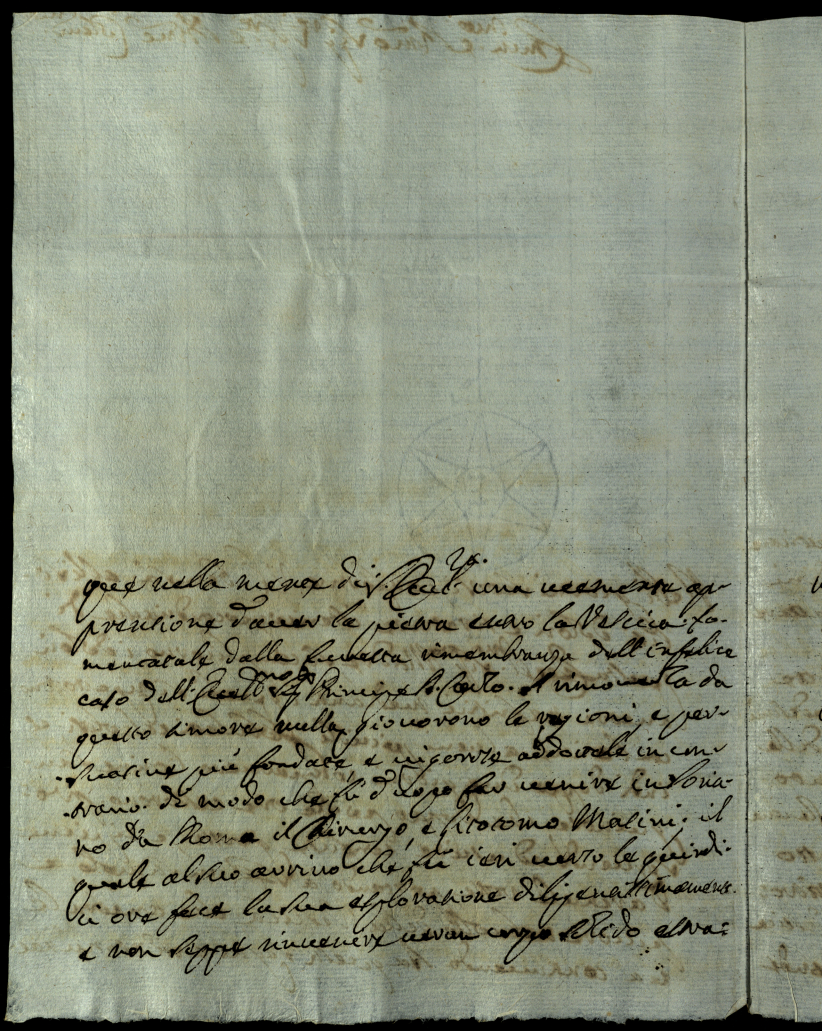 que nella mente di S. Ecc.za una veemente ap-
prensione d'aver la pietra entro la Vescica fo-
mentatale dalla funesta rimembranza dell'infelice
caso dell'Eccell.mo Sig.r Principe D. Carlo. A rimoverla da
questo timore nulla giovorono le ragioni, e per-
suasive più fondate, e vigorose addottale in con-
trario. Di modo che fù d'uopo far venire in Soria-
no da Roma il Chirurgo, e litotomo Masini; il
quale al suo arrivo che fù ieri verso le quindi-
ci ore fece la sua esplorazione diligentissimamente
e non seppe rinvenire verun corpo solido estra-